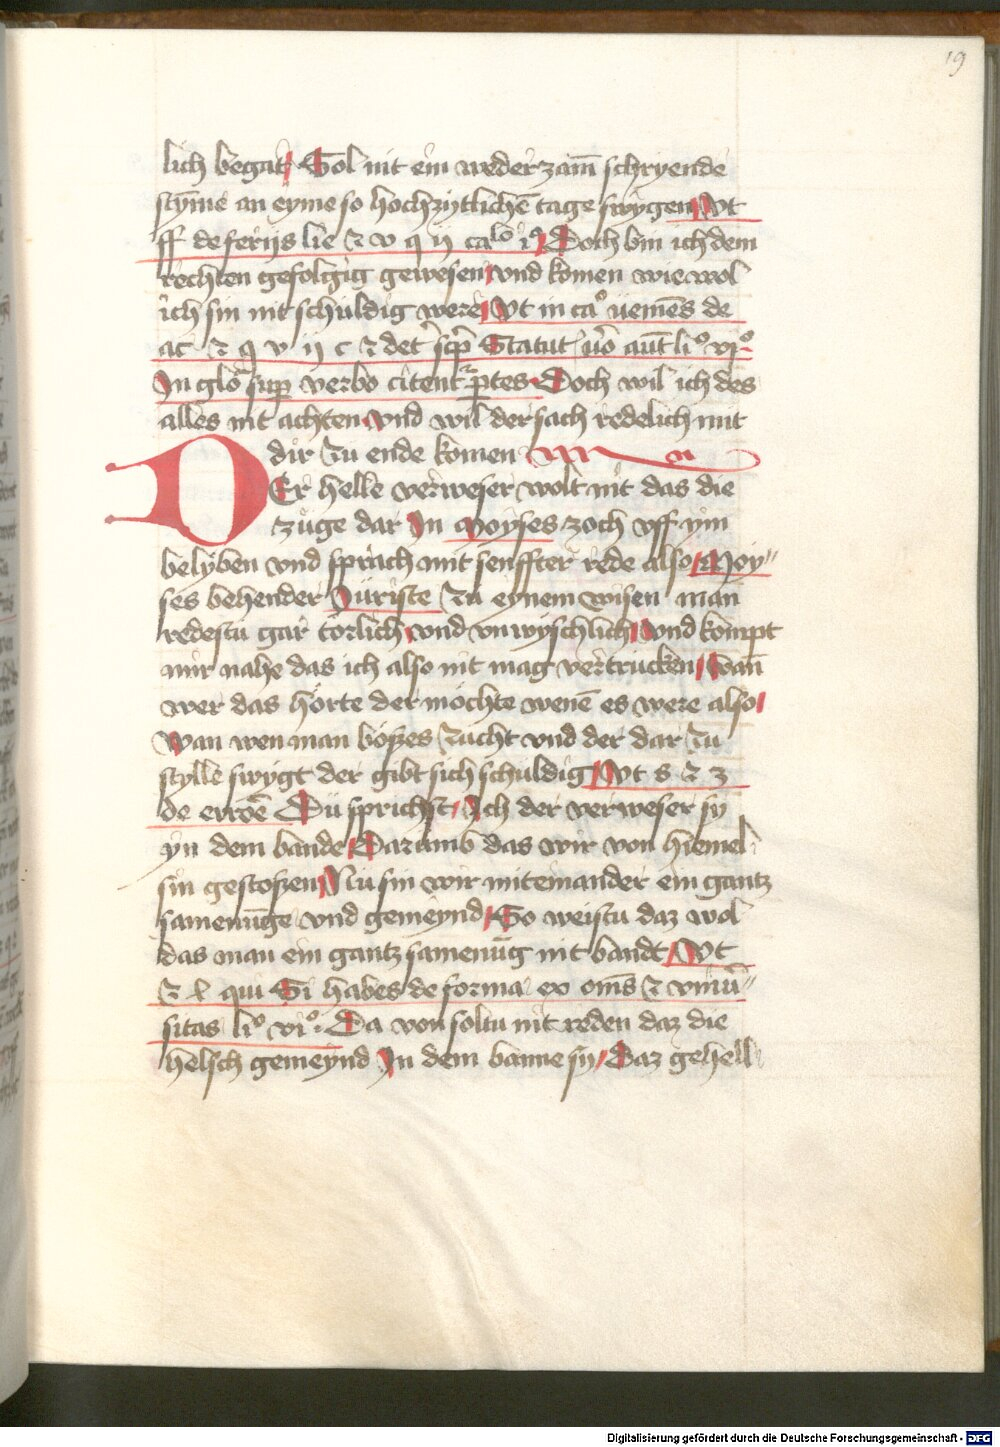 19
lich begat Sol nit ein weder zam̄ schryende
stȳme an eyme so hochzytlichē tage swygen Vt
ff de ferijs lie ⁊ v q ij caͦ iͦ Doch bin ich dem
rechten gefolgig gewesen vnd komen wie wol
ich sin nit schuldig were Vt in caͦ
ac ⁊ q v ij c ⁊ Statut liͦ viͦ
In gloͦ sup verbo citent Doch wil ich des
alles nit achten vnd wil der sach redelich mit
dir zu ende komen
DEr helle verweser wolt nit das die
zuͤge dar In Moyses zoch vff ym
belyben vnd sprach mit senffter rede also Moy〃
ses behender Juriste zu eynem wisen man
redestu gar torlich vnd vnwyschlich vnd kompt
mir nahe das ich also nit mag vertrucken Wan̄
wer das horte der mochte wenē es were also
Wan wen man boszes zucht vnd der dar zu
stylle swygt der gibt sich schuldig Vt s ⁊ 3
de Dü sprichst Ich der verweser sy
yn dem bande Darumb das wir von hiemel
sin gestoszen Nu sin wir miteinander ein gantz
samenūge vnd gemeynd So weistu daz wol
das man ein gantz samenūg nit bandt Vt
⁊ l qui Si habes de forma ex om̄s ⁊ vniū〃
sitas liͦ viͦ Da von soltu nit reden daz die
helsch gemeynd In dem banne sy Daz gehell
Digitalisierung gefördert durch die Deutsche Forschungsgemeinschaft - DFG